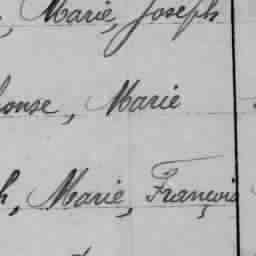 , Marie, Joseph
onse, Marie
h, Marie, François